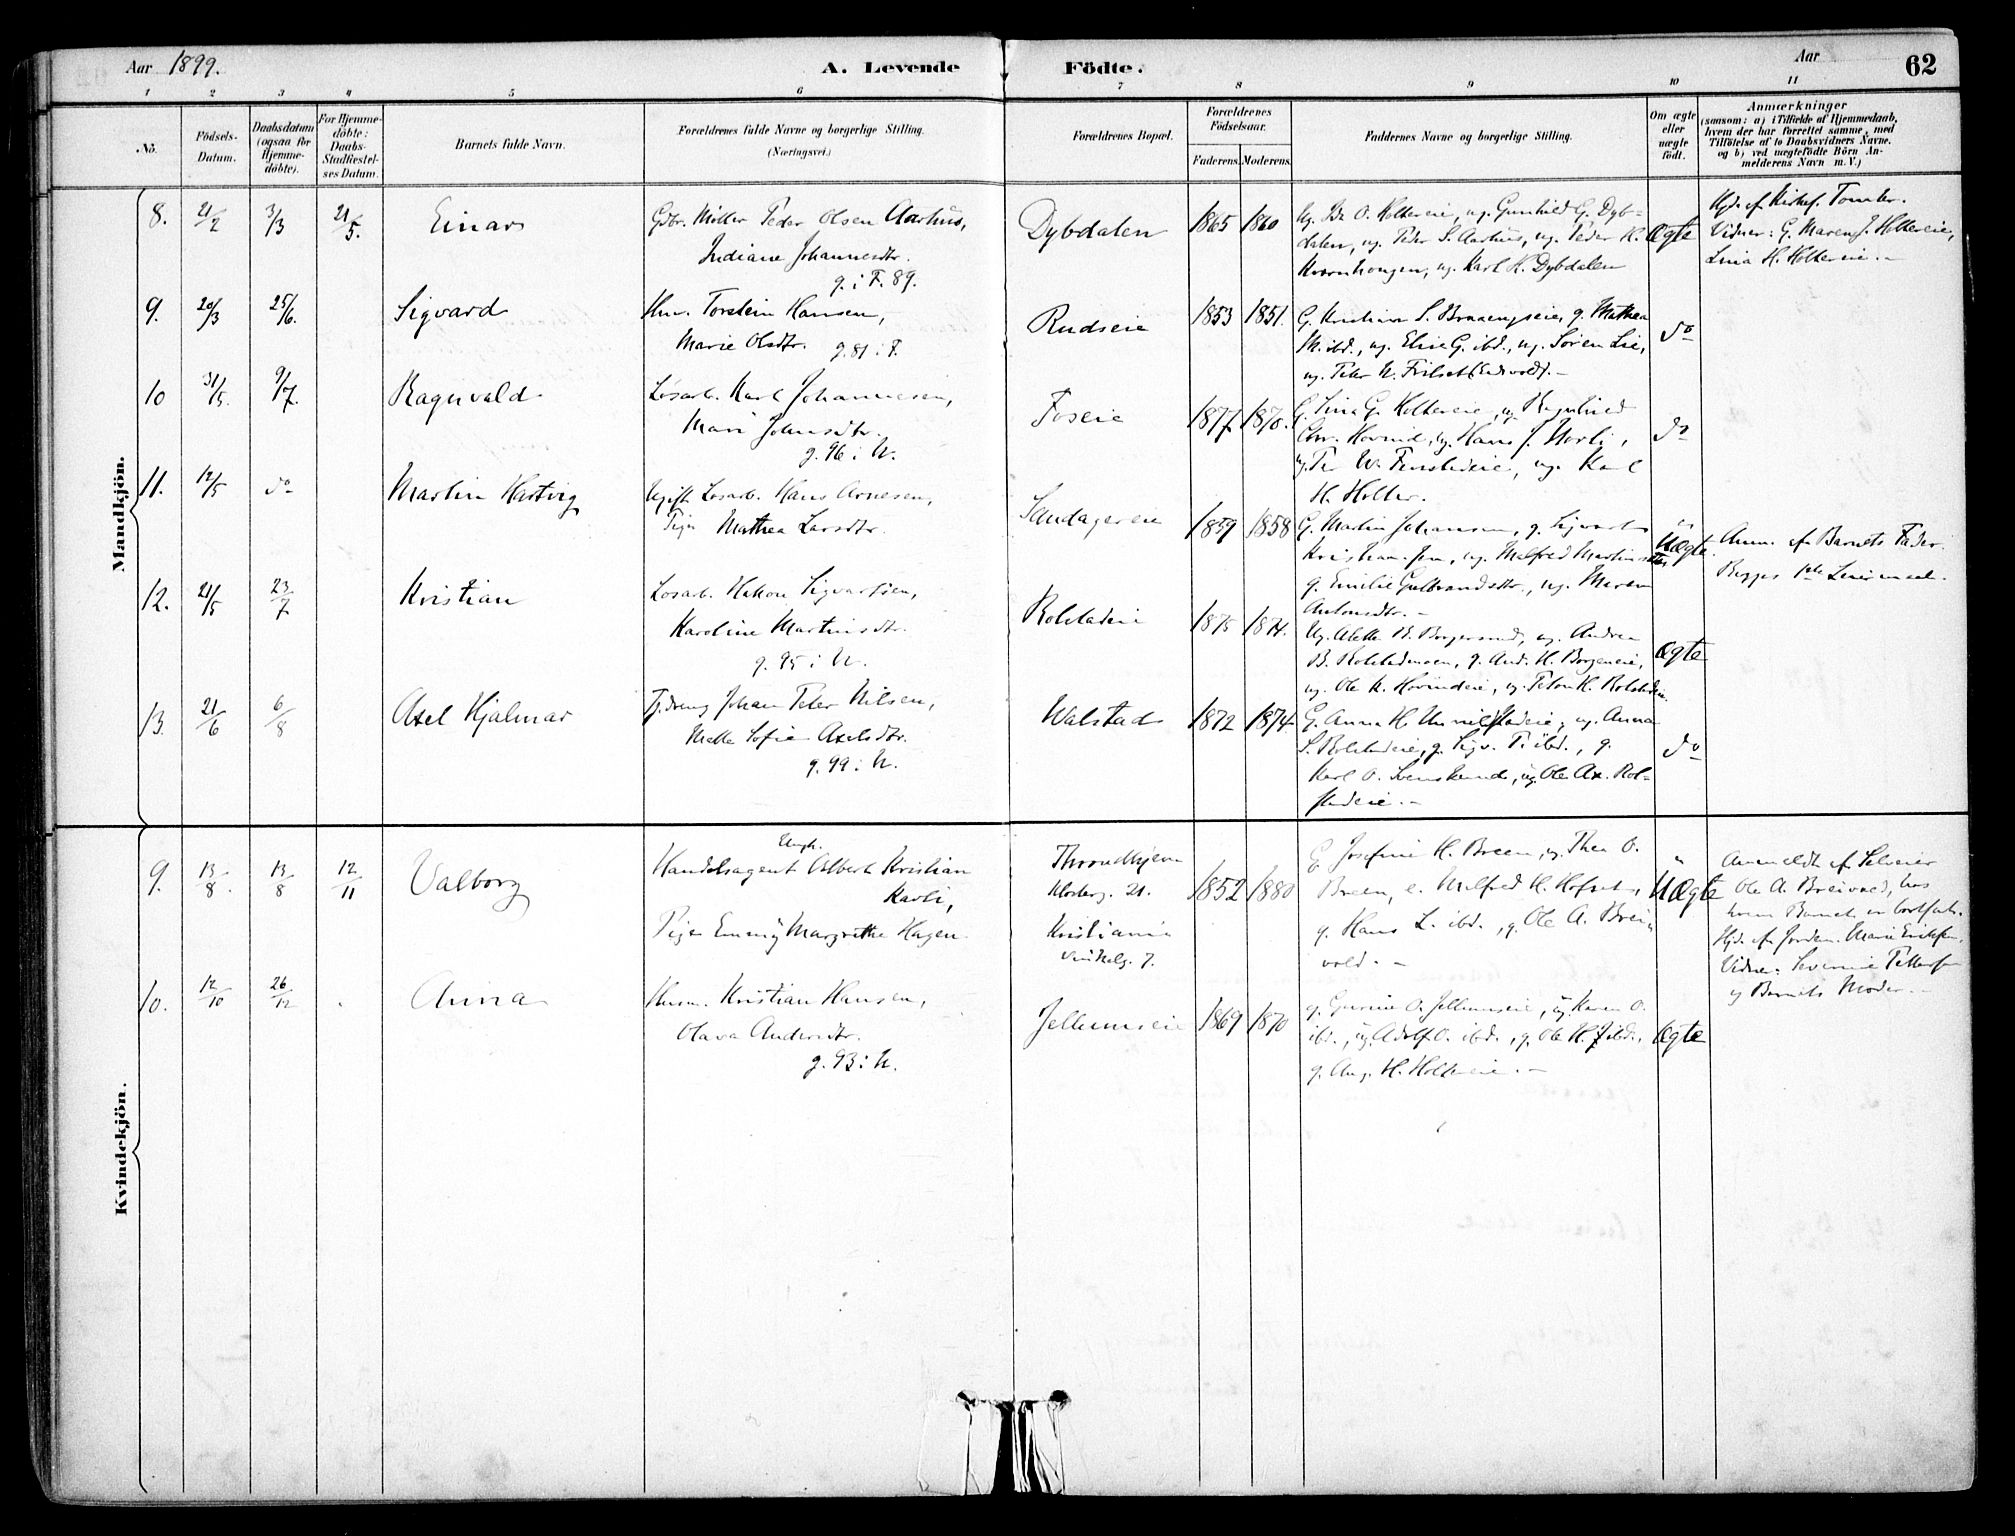 Aar 1899.
A. Levende Födte.
Aar
62
1 2 3 4 5 6 7 8 9 10 11
No.
Födsels-Datum.
Daabsdatum (ogsaa for Hjemmedöbte).
For Hjemmedöbte: Daabs-Stadfæstelses Datum.
Barnets fulde Navn.
Forældrenes fulde Navne og borgerlige Stilling.
(Næringsvei.)
Forældrenes Bopæl.
Forældrenes Födselsaar.
Faderens. Moderens.
Faddernes Navne og borgerlige Stilling.
Om ægte eller uægte födt.
Anmærkninger
(saasom: a) i Tilfælde af Hjemmedaab, hvem der har forrettet samme, med Tilföielse af to Daabsvidners Navne, og b) ved uægtefödte Börn Anmelderens Navn m. V.)
Mandkjön.
8. 21/2 3/3 21/5. Einar
Gdbr. Møller Peder Olsen Aarhus,
Indiane Johannesdtr.
g. i F. 89.
Dybdalen 1865 1860
Holtereie, ug. Gunhild G. Dyb-
dalen, ug. Peder S. Aarhus, ug. Peder K.
ug. Karl H. Dybdalen
Ægte
Vidner: G. Maren J. Holtereie,
Lina H. Holtereie.-
9. 20/3 25/6. Sigvard
Torstein Hansen,
Marie Olsdtr. g. 81 i F.
Rudseie 1853 1851.
g. Mathea
M. ibd., ug. Elise G. ibd., ug. Søren Lie,
do
10 31/5. 9/7. Ragnvald
Løsarb. Karl Johannesen,
Mari Johnsdtr.
g. 96 i N.
Foseie 1877 1870.
G. Lina G. Holtereie, ug. Ragnhild
Chr. Hovind, ug. Hans J. Norli,
ug. Karl
H. Holter.
do
11. 12/5 do Martin Hartvig
Ugift Løsarb. Hans Arnesen,
Pige Mathea Larsdtr.
Sandagereie 1859 1858
G. Martin Johansen, g. Sigvart
Kristiansen, ug. Malfred
g. Emilie Gulbrandsdtr., ug. Maren
Antonsdtr.-
Uægte.
Anm. af Barnets Fader.
Begges 1ste Leiermaal.
12. 21/5 23/7 Kristian
Løsarb. Hakon Sigvartsen,
Karoline Martinsdtr.
g. 95 i N.
Rolstadeie 1875 1874.
ug. Andrea
B. Rolstadmoen, g. And. H. Borgeneie,
ug. Ole K. Hovindeie, ug.
Ægte
13. 21/6 6/8 Axel Hjalmar
Johan Peter Nilsen,
Mette Sofie Axelsdtr.
g. 99 i N.
Walstad 1872 1874
G. Anna H. ug. Anna
S. Rolstadeie, g. Sigv. P. ibd., g.
Karl O. ug. Ole Ax. Rol-
stadeie.-
do
Kvindekjön.
9. 13/8. 13/8 12/11 Valborg
Ungk.
Handelsagent Albert Kristian
Kavli,
Pige Emmy Margrethe Hagen.
Throndhjem
Klosterg. 21.
Kristiania
Vinkelg. 7.
1852 1880
G. Josefine H. Breen, ug. Thea O.
Breen, e. Malfred H.
g. Hans L. ibd., g. Ole A. Brei-
vold.-
Uægte
Anmeldt af Selveier
Ole A. Breivold, hos
hvem Barnet er bortsat.
Hjd. af Jordem. Marie Eriksen.
Vidner: Severine Pettersen
og Barnets Moder.-
10. 12/10 26/12 Anna
Husm. Kristian Hansen,
Olava Andersdtr.
g. 93 i N.
Jellumseie 1869 1870
g. Gurine O. Jellumseie, ug. Karen O.
ibd., ug. Adolf O. ibd., g. Ole H. ibd.,
g. Aug. H. Holtereie.-
Ægte